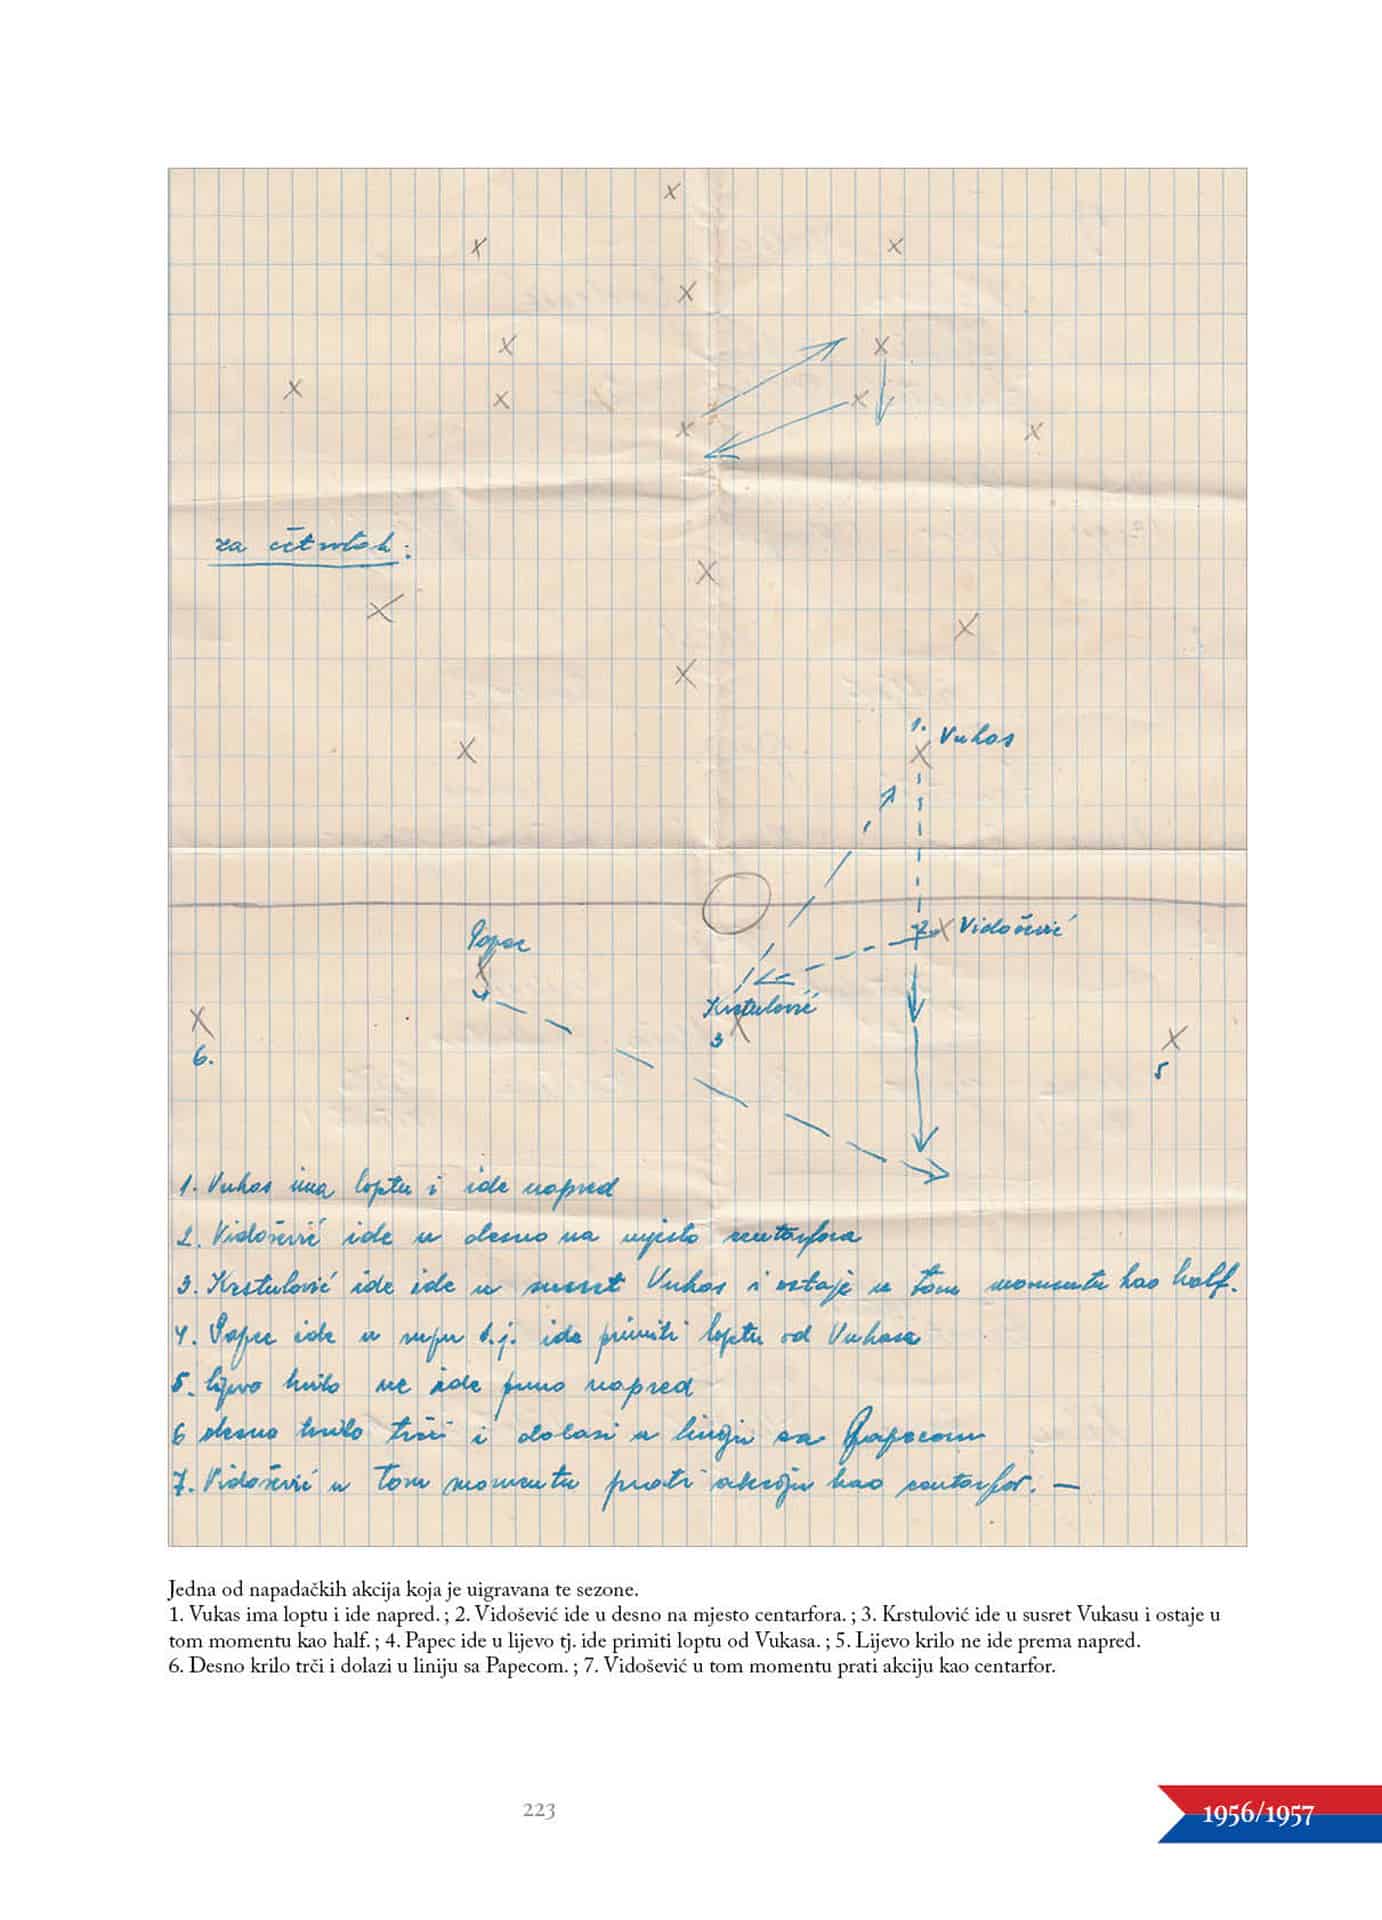 za četvrtak:
1. Vukas
Papec
2. Vidošević
Krstulović
3
6.
5
1. Vukas ima loptu i ide napred
2. Vidošević ide u desno na mjesto centarfora
3. Krstulović ide ide u susret Vukas i ostaje u tom momentu kao half.
4. Papec ide u t.j. ide primiti loptu od Vukasa
5. lijevo krilo ne ide puno napred
6 desno krilo trči i dolazi u liniju sa Papecom
7. Vidošević u tom momentu prati akciju kao centarfor. —
Jedna od napadačkih akcija koja je uigravana te sezone.
1. Vukas ima loptu i ide napred. ; 2. Vidošević ide u desno na mjesto centarfora. ; 3. Krstulović ide u susret Vukasu i ostaje u
tom momentu kao half. ; 4. Papec ide u lijevo tj. ide primiti loptu od Vukasa. ; 5. Lijevo krilo ne ide prema napred.
6. Desno krilo trči i dolazi u liniju sa Papecom. ; 7. Vidošević u tom momentu prati akciju kao centarfor.
223
1956/1957